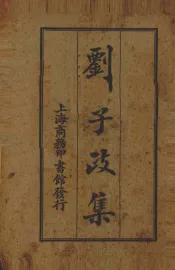 劉子政集
上海商務印書館發行